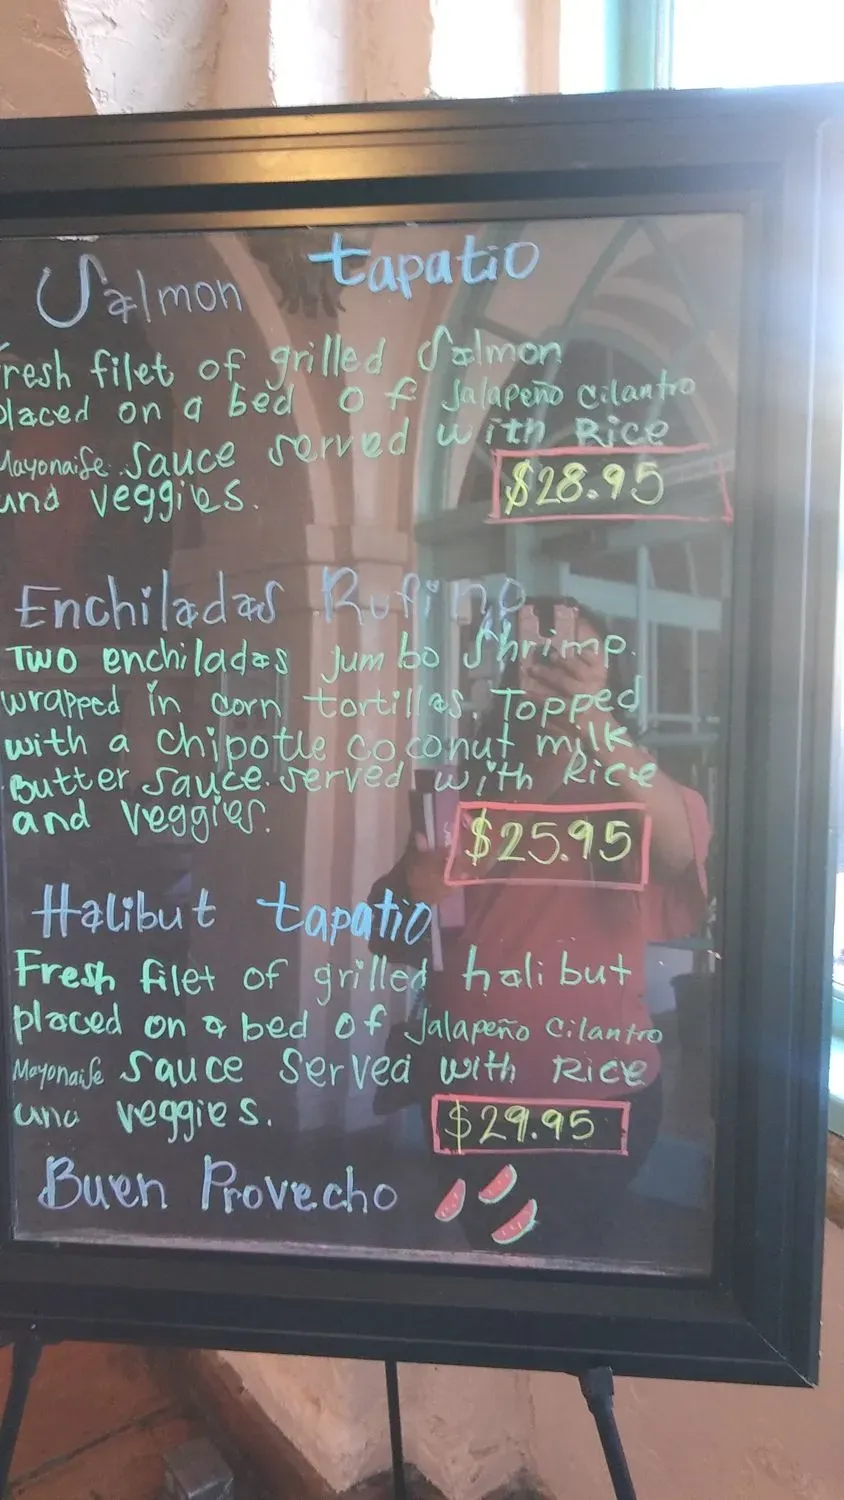 Salmon tapatio
Fresh filet of grilled Salmon
placed on a bed of Jalapeño Cilantro
Mayonaise Sauce served with Rice
and veggies. $28.95
Enchiladas Rufino
Two enchiladas jumbo Shrimp.
wrapped in corn tortillas. Topped
with a chipotle coconut milk
Butter Sauce. served with Rice
and veggies. $25.95
Halibut tapatio
Fresh filet of grilled halibut
placed on a bed of Jalapeño Cilantro
Mayonaise Sauce Served with Rice
and veggies. $29.95
Buen Provecho